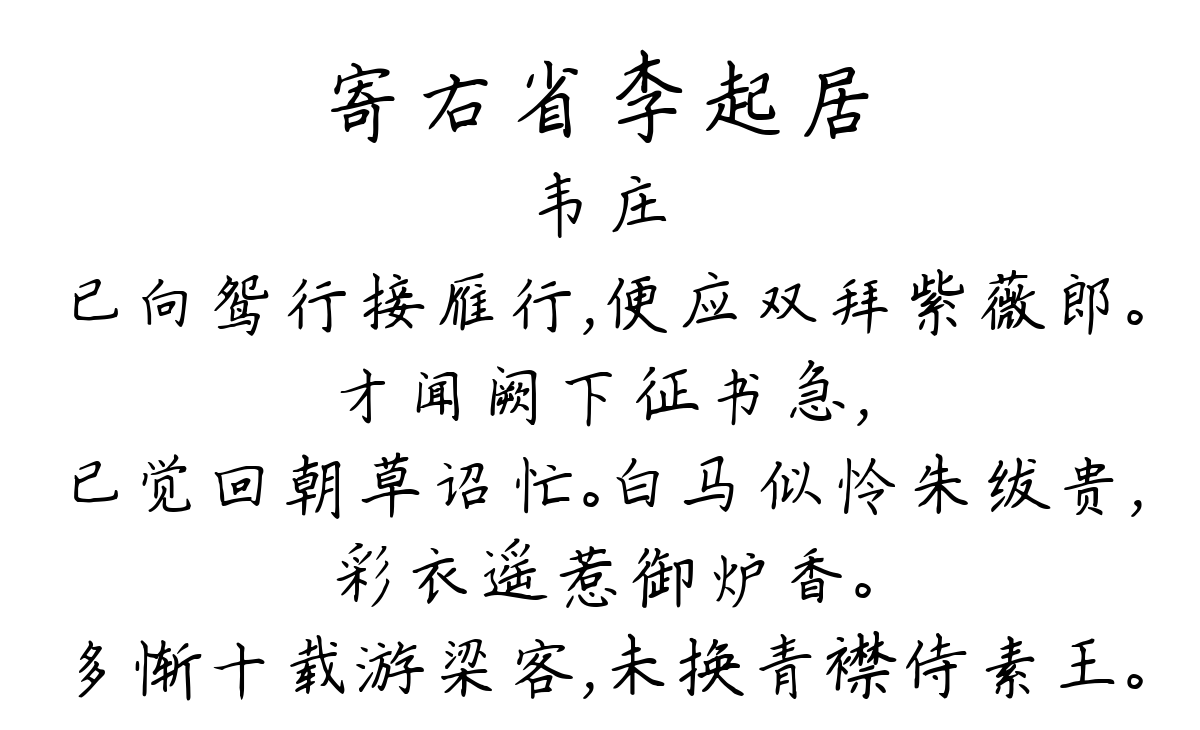 寄右省李起居
韦庄
已向鸳行接雁行,便应双拜紫薇郎。
才闻阙下征书急,
已觉回朝草诏忙。白马似怜朱绂贵,
彩衣遥惹御炉香。
多惭十载游梁客,未换青襟侍素王。